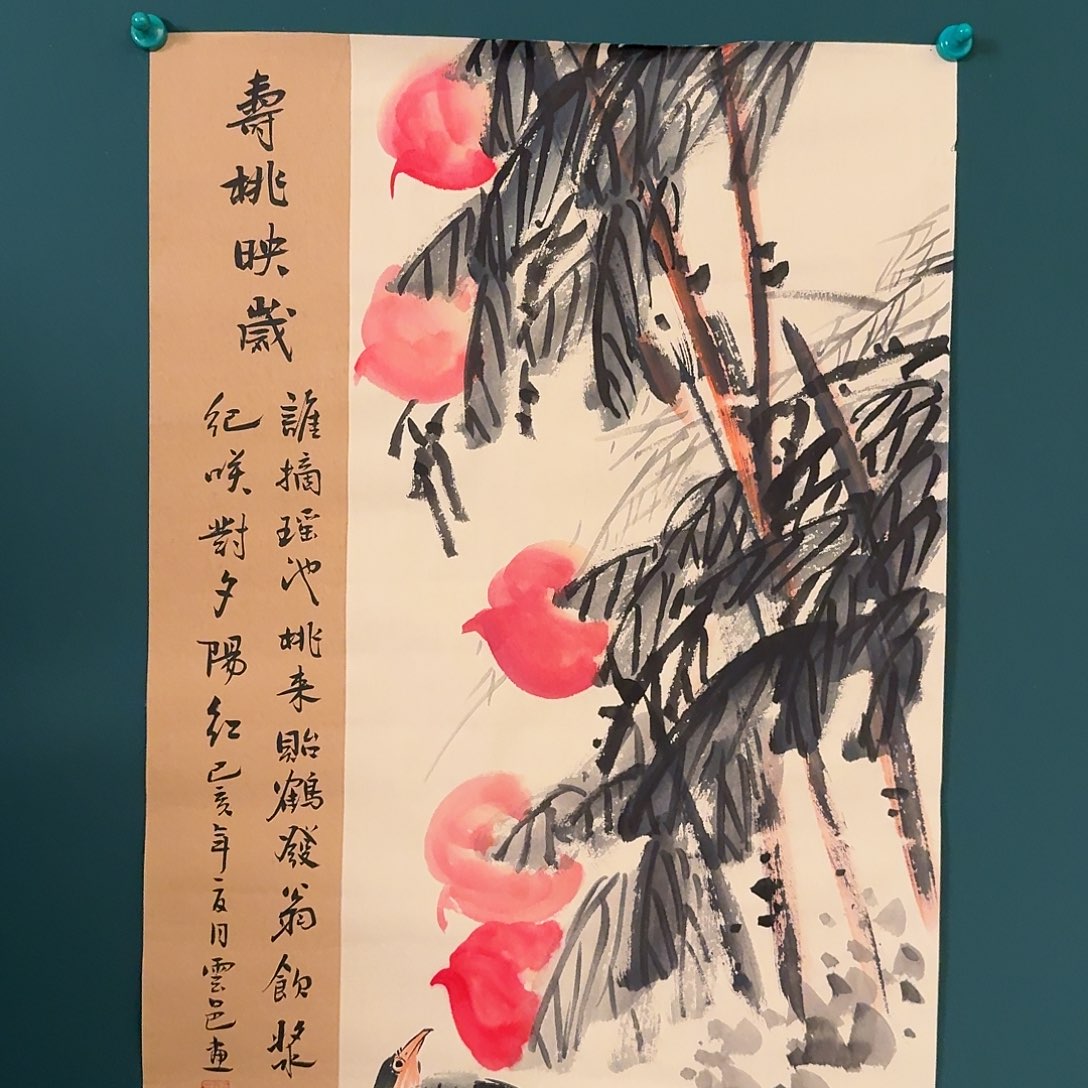 壽桃映歲
誰摘瑶池桃来貽鶴發翁飲漿
紀咲對夕陽紅己亥年二月雲邑画